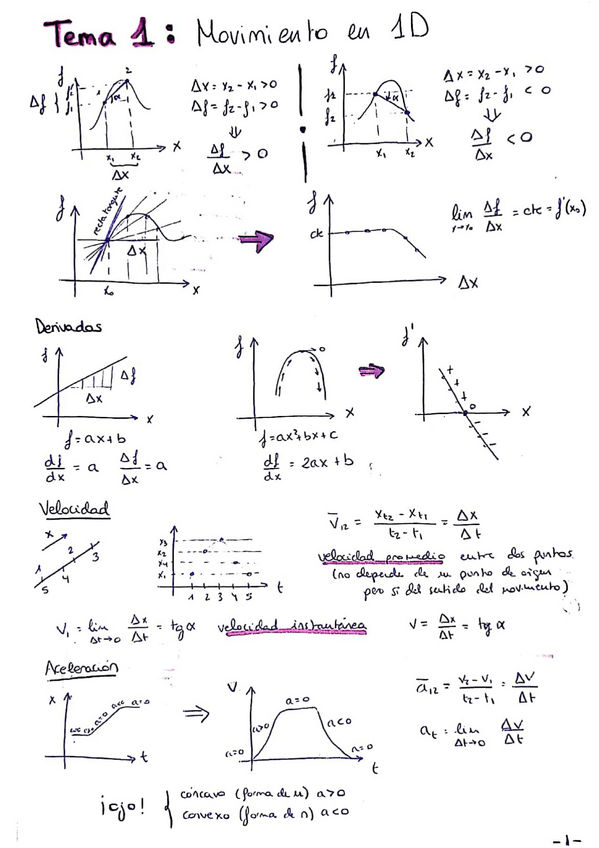 Tema 1: Movimiento en 1D
f
2
Δf { f₂ f₁
1
α
x₁ x₂
Δx
x
Δx = x₂ - x₁ > 0
Δf = f₂ - f₁ > 0
⇓
Δf/Δx > 0
f
f₁
f₂
α
x₁ x₂
x
Δx = x₂ - x₁ > 0
Δf = f₂ - f₁ < 0
⇓
Δf/Δx < 0
f
recta tangente
Δx
x₀
x
f
cte
Δx
lim Δf/Δx = cte = f'(x₀)
Derivadas
f
Δf
Δx
x
f = ax + b
df/dx = a Δf/Δx = a
f
0
x
f = ax² + bx + c
df/dx = 2ax + b
f'
+ + +
0
- - - -
x
Velocidad
x
1 2 3
5 4
x₃
x₂
x₄
x₁
1 2 3 4 5
t
V̅₁₂ = (x_t2 - x_t1)/(t₂ - t₁) = Δx/Δt
velocidad promedio entre dos puntos
(no depende de su punto de origen
pero si del sentido del movimiento)
V₁ = lim Δt→0 Δx/Δt = tg α velocidad instantánea V = Δx/Δt = tg α
Aceleración
x
a>0 a=0 a<0 a=0
t
⇒
V
a=0 a>0 a=0 a<0 a=0
t
a̅₁₂ = (V₂ - V₁)/(t₂ - t₁) = ΔV/Δt
a_t = lim Δt→0 ΔV/Δt
¡ojo! { cóncavo (forma de u) a>0
convexo (forma de n) a<0
-1-